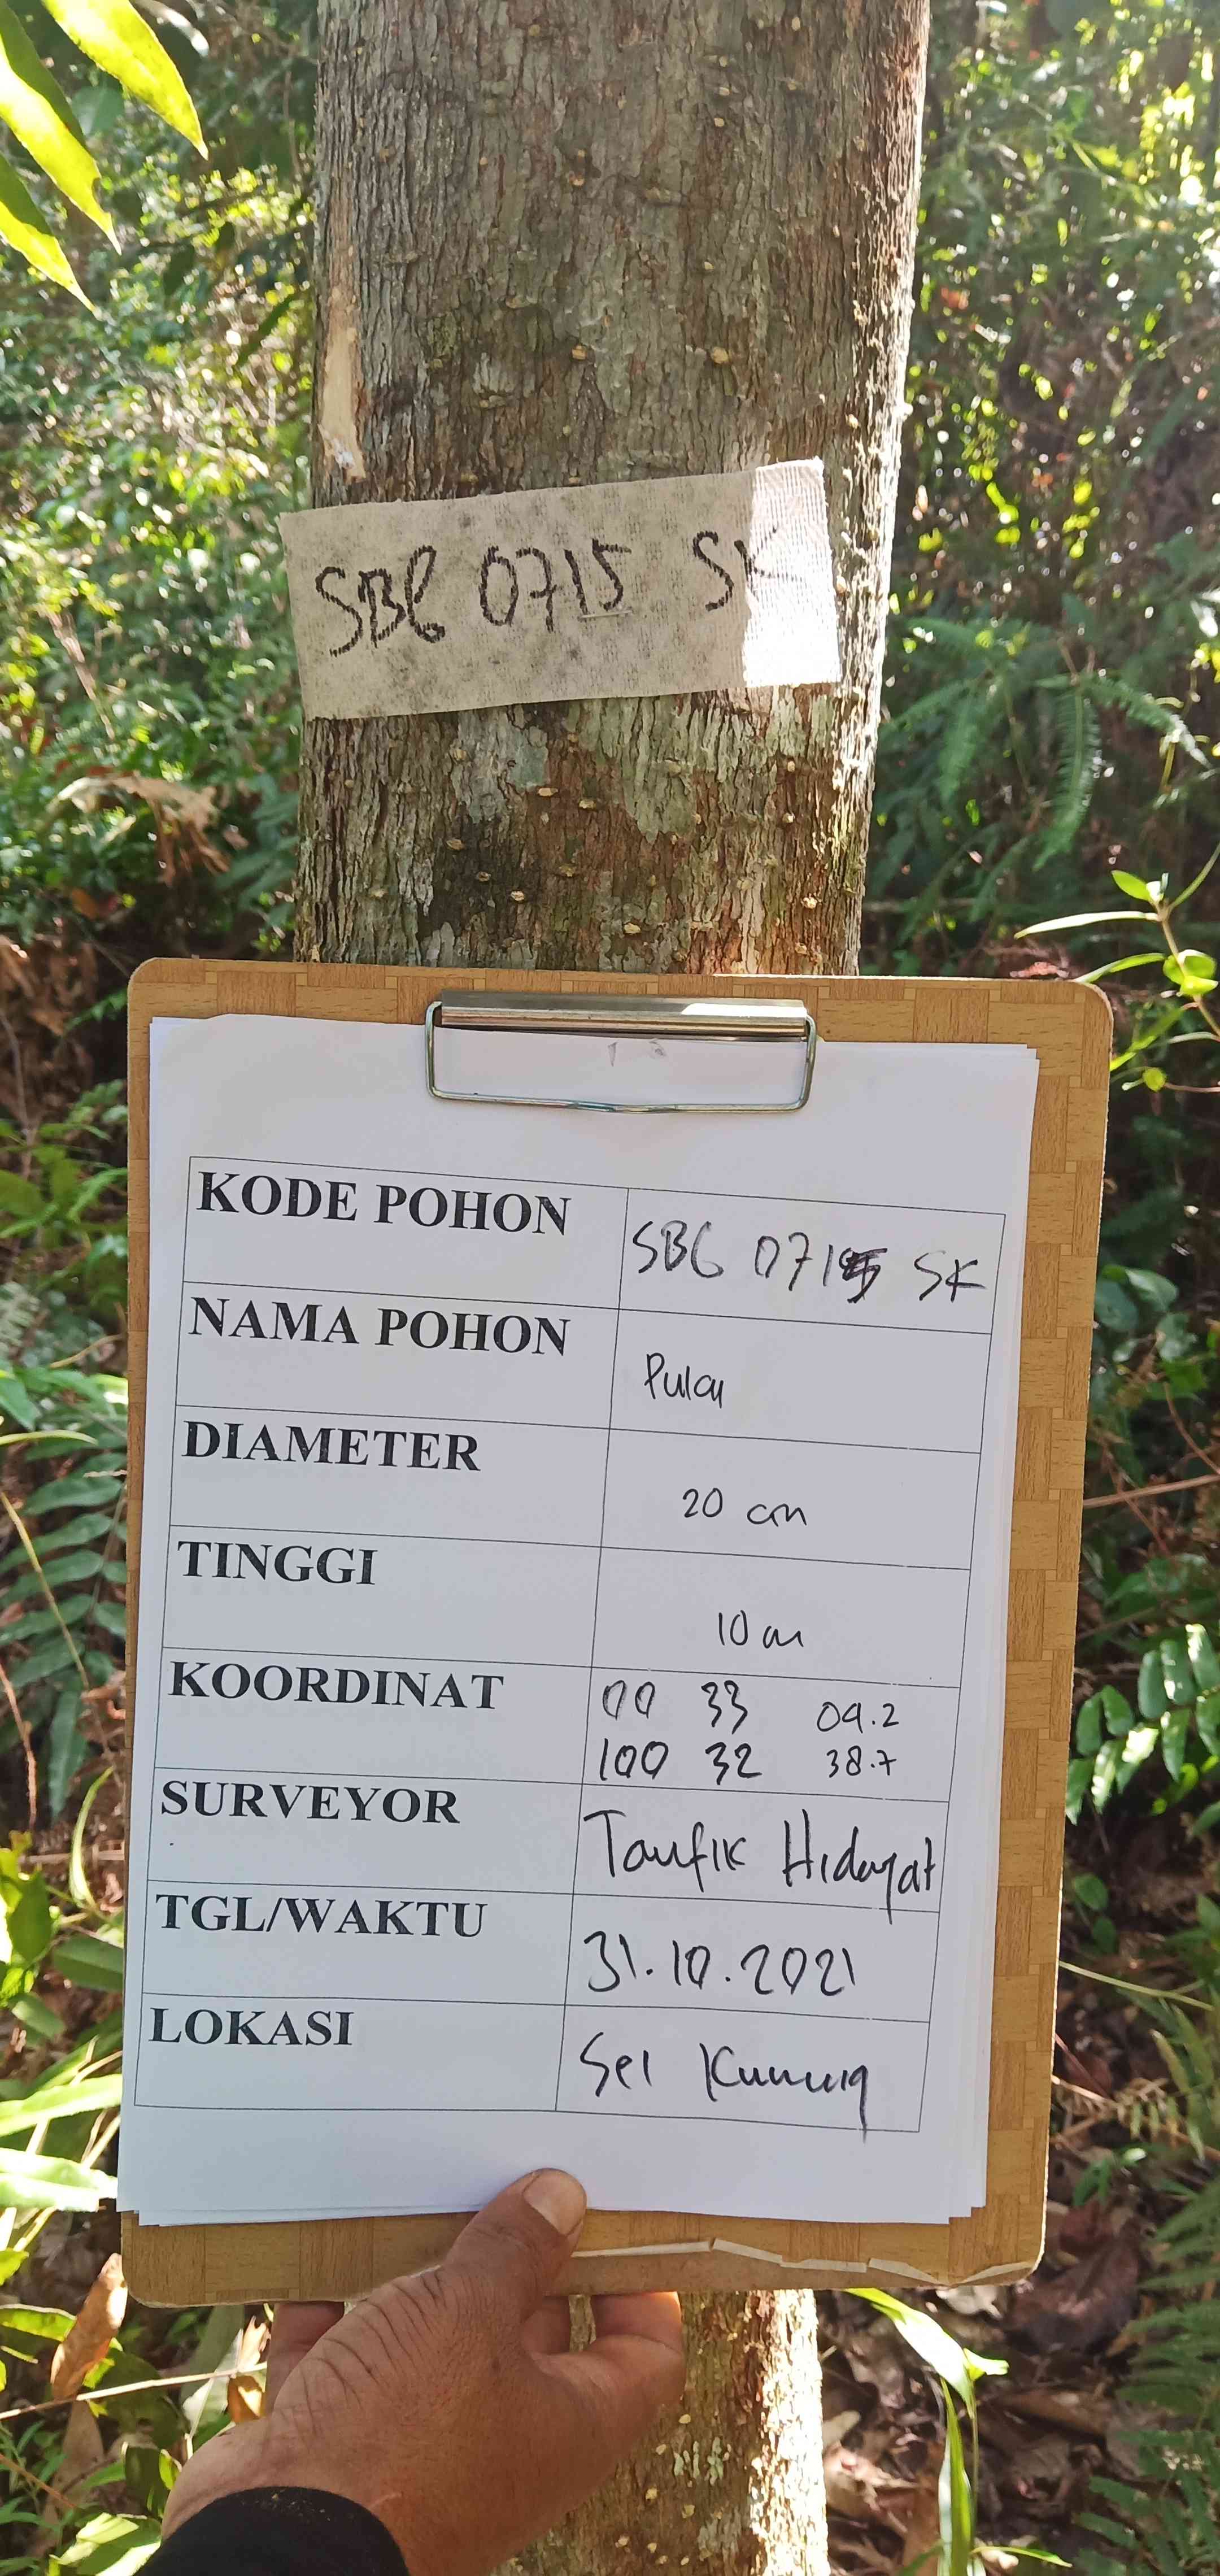 SBG 0715 SK
KODE POHON SBG 0715 SK
NAMA POHON Pulai
DIAMETER 20 cm
TINGGI 10 m
KOORDINAT 00 33 09.2
100 32 38.7
SURVEYOR Taufik Hidayat
TGL/WAKTU 31.10.2021
LOKASI Sei Kuning